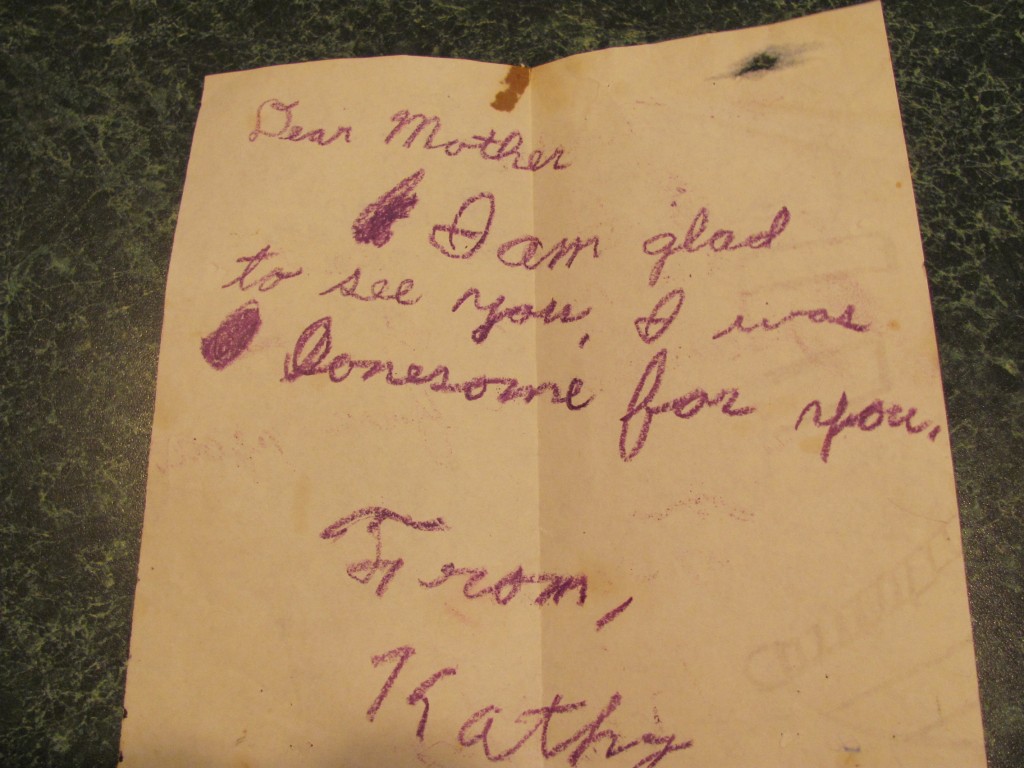 Dear Mother
I am glad
to see you, I was
lonesome for you.
From,
Kathy